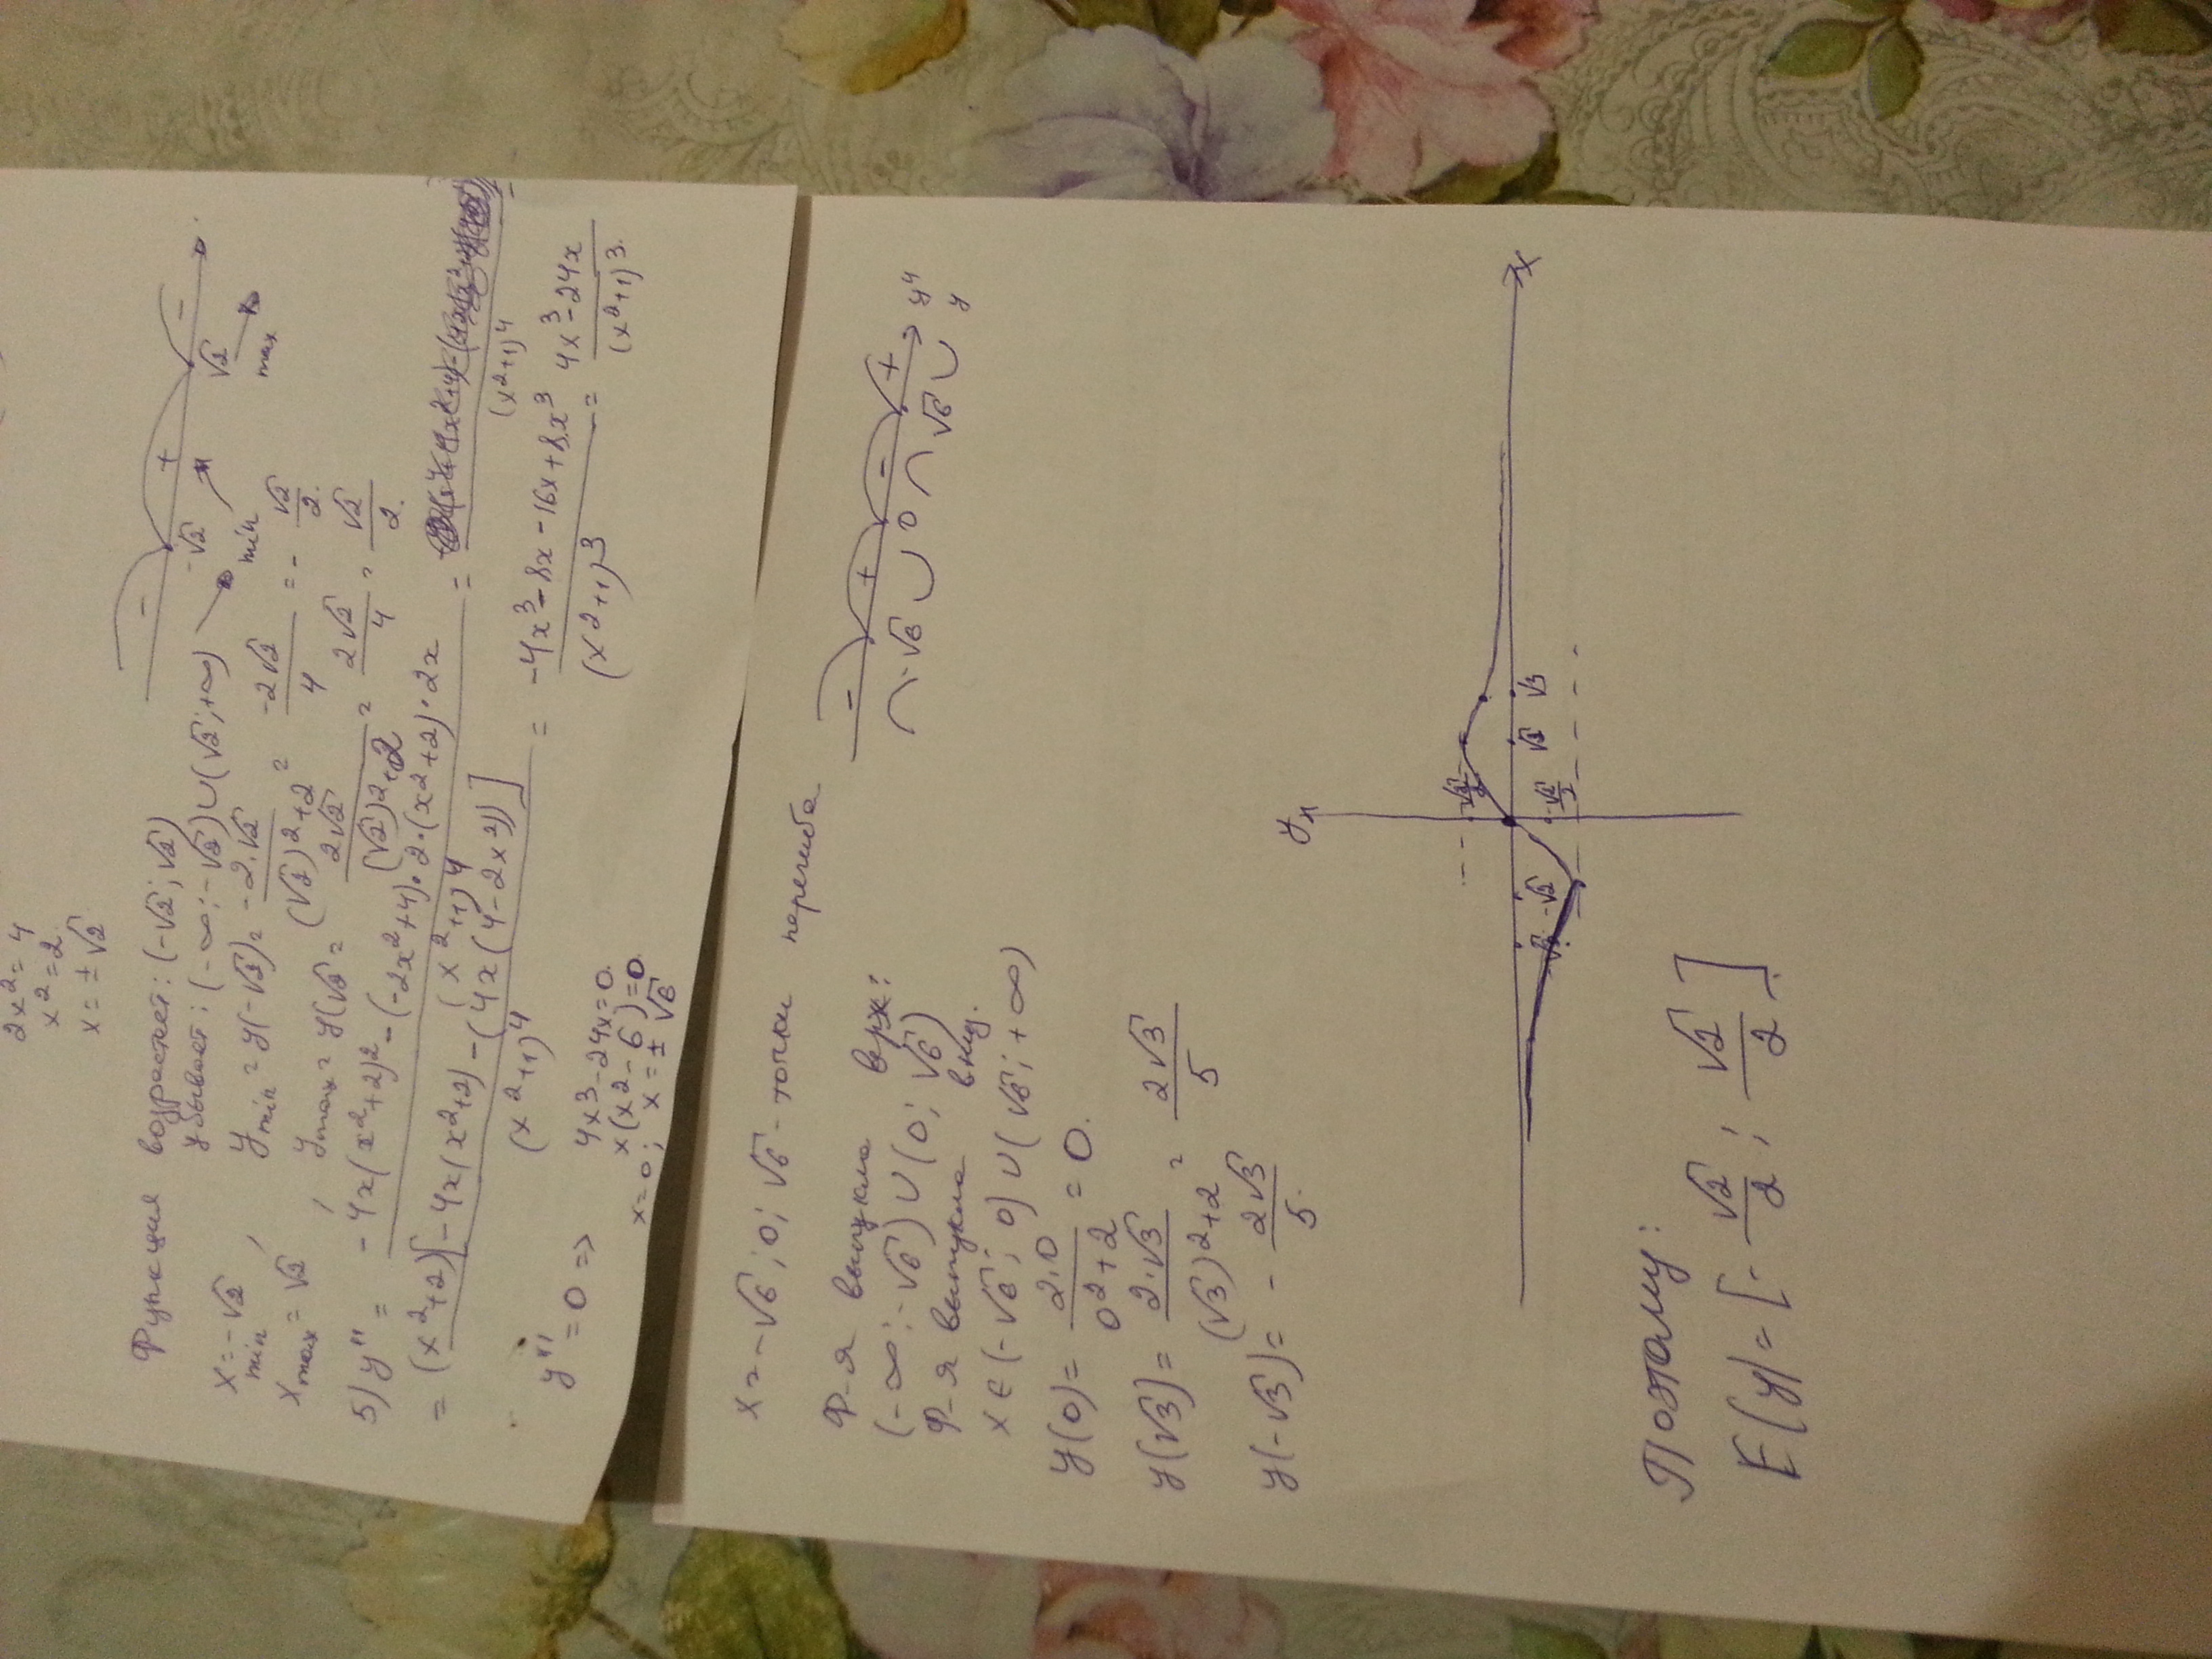 2x²=4
x²=2
x=±√2
- + -
-√2 √2
min max
Функция возрастет: (-√2; √2)
убывает: (-∞; -√2)∪(√2; +∞)
x min = -√2, y min = y(-√2) = -2·√2/((√2)²+2) = -2√2/4 = -√2/2.
x max = √2, y max = y(√2) = 2√2/((√2)²+2) = 2√2/4 = √2/2.
5) y'' = (-4x(x²+2)² - (-2x²+4)·2·(x²+2)·2x)/(x²+1)⁴ =
= (x²+2)[-4x(x²+2) - (4x(4-2x²))]/(x²+1)⁴ = (-4x³-8x-16x+8x³)/(x²+1)³ = (4x³-24x)/(x²+1)³.
y''=0 => 4x³-24x=0.
x(x²-6)=0.
x=0; x=±√6
x=-√6; 0; √6 - точки перегиба
- + - +
-√6 0 √6
y''
y
Ф-я выпукла верх:
(-∞; -√6)∪(0; √6)
Ф-я выпукла вниз.
x∈(-√6; 0)∪(√6; +∞)
y(0) = 2·0/(0²+2) = 0.
y(√3) = 2·√3/((√3)²+2) = 2√3/5
y(-√3) = -2√3/5.
y
x
√2/2
-√2
√2 √3
-√2/2
Поэтому:
E(y)=[-√2/2; √2/2].